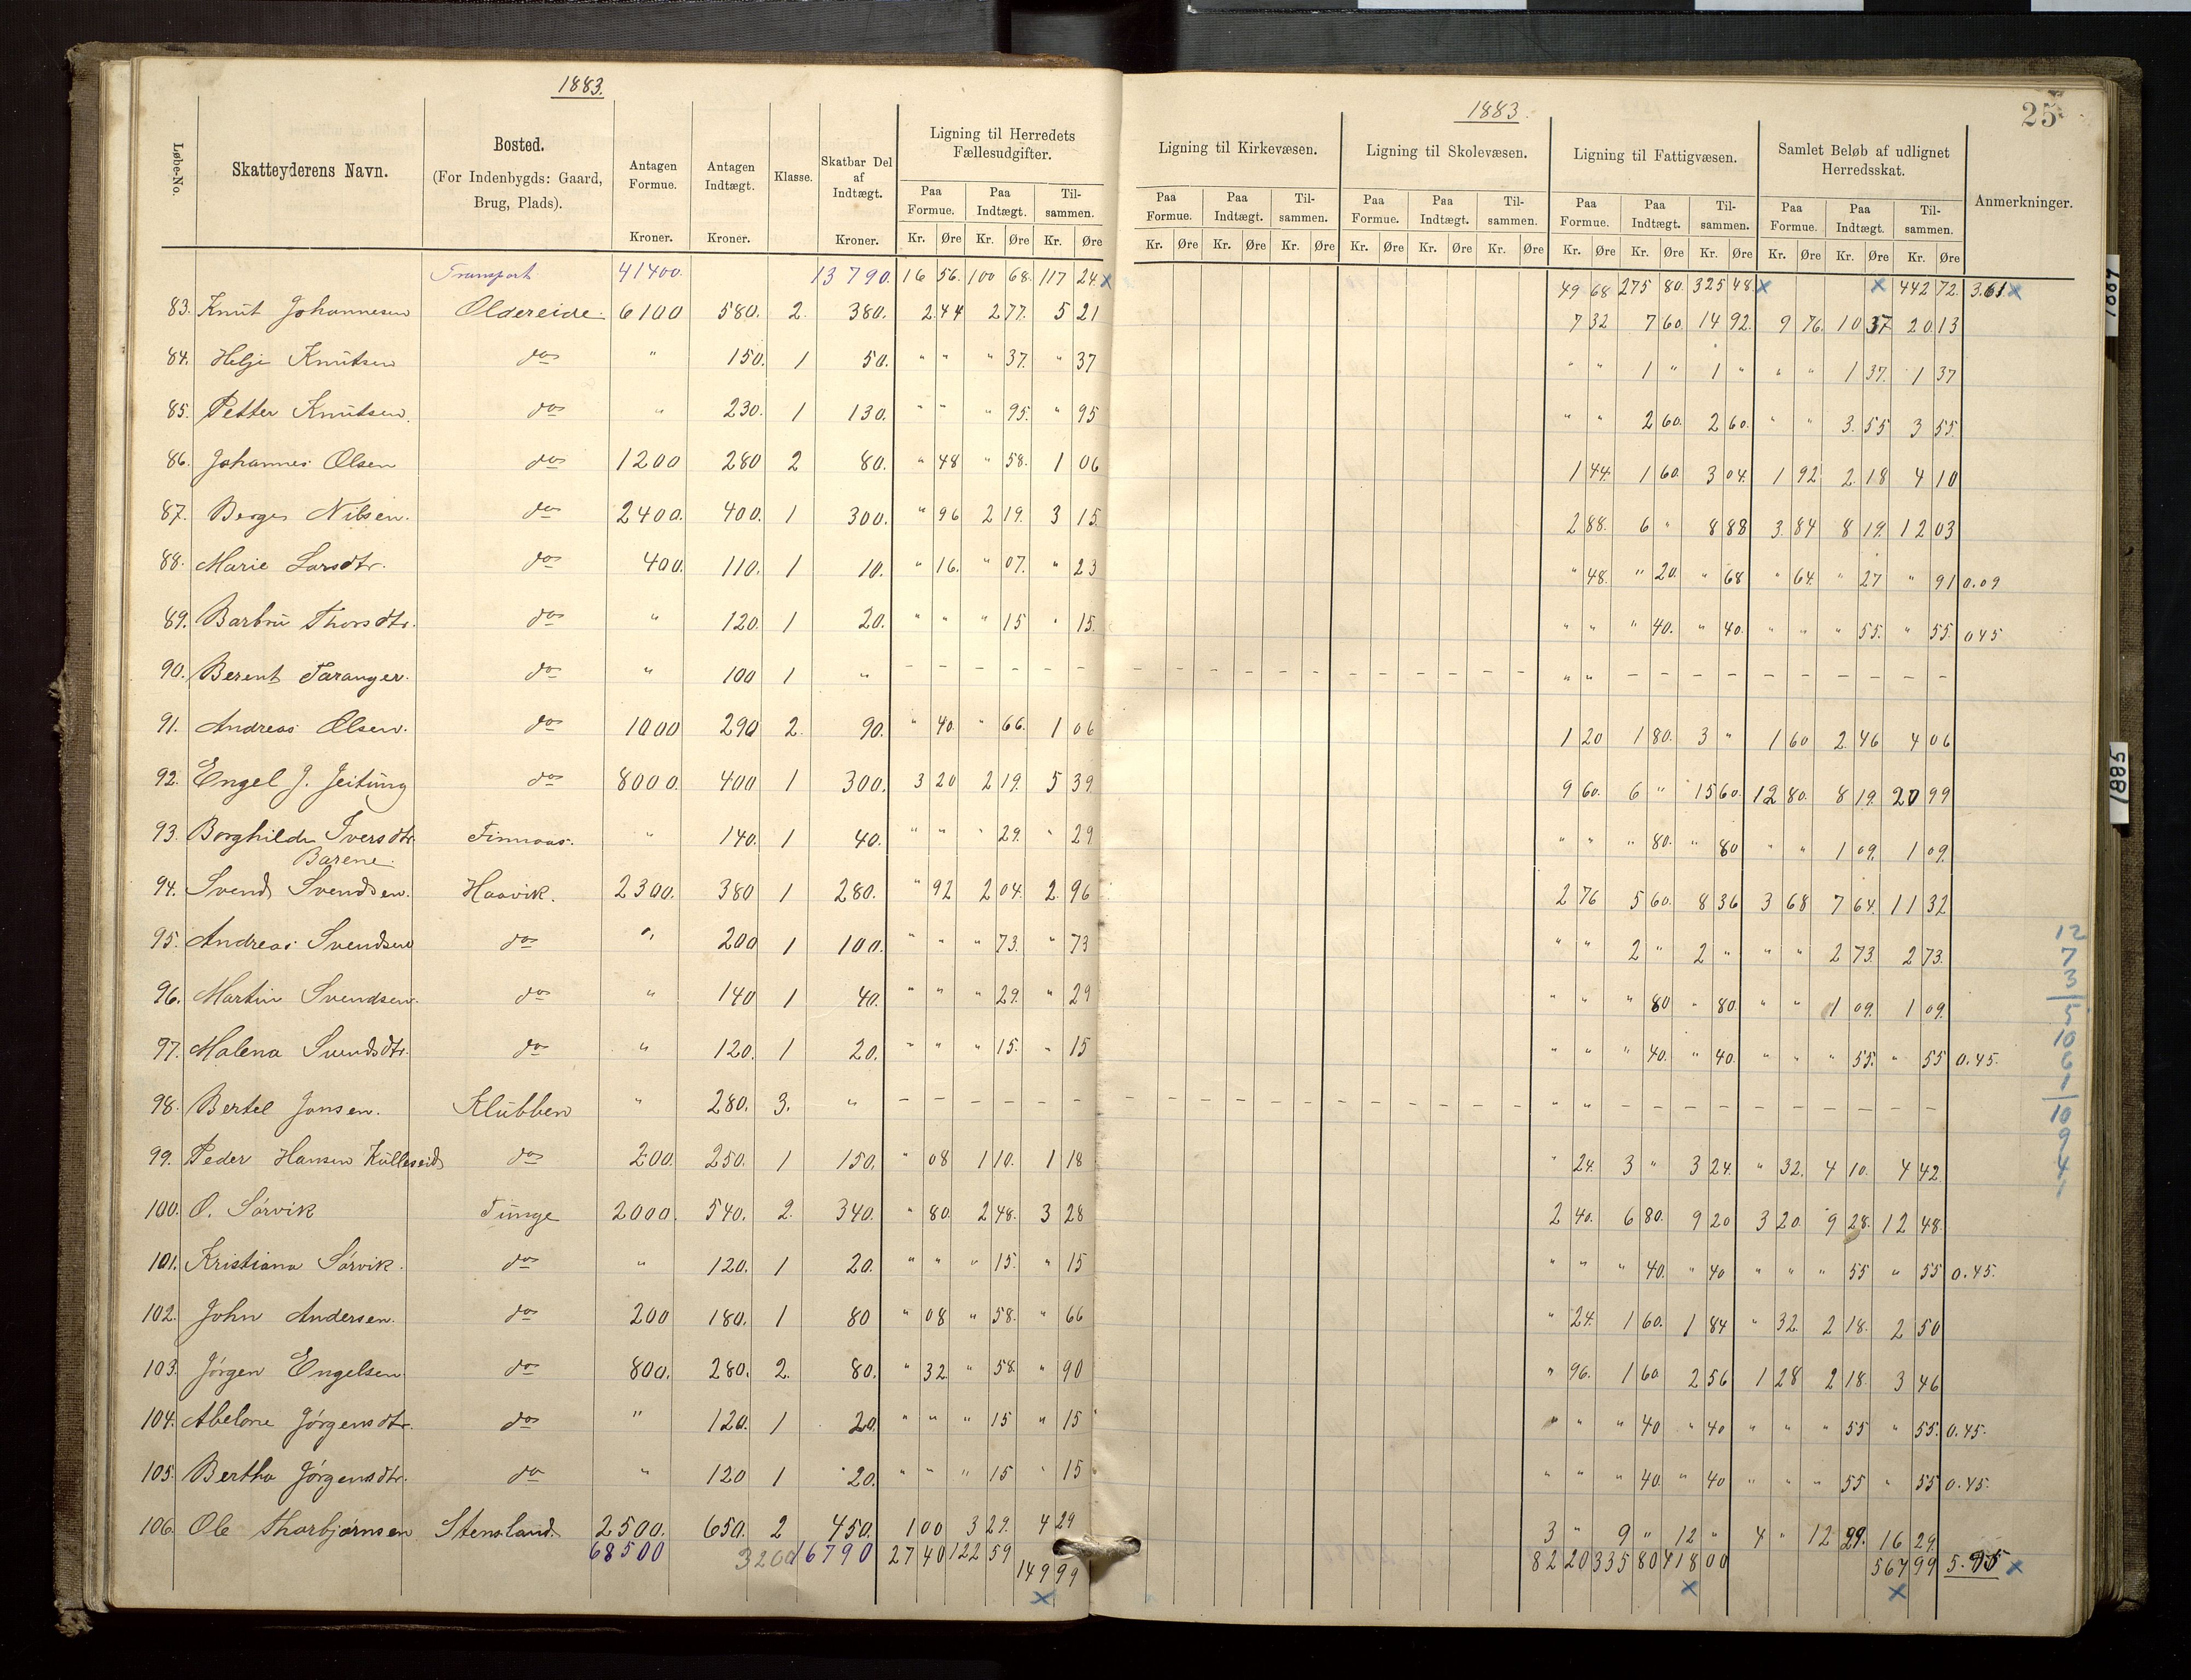 1883.
1883.
25
Løbe-No.
Skatteyderens Navn.
Bosted.
(For Indenbygds: Gaard,
Brug, Plads).
Antagen
Formue.
Kroner.
Antagen
Indtægt.
Kroner.
Klasse.
Skatbar Del
af
Indtægt.
Kroner.
Ligning til Herredets
Fællesudgifter.
Paa
Formue.
Paa
Indtægt.
Til-
sammen.
Kr. Øre Kr. Øre Kr. Øre
Ligning til Kirkevæsen.
Paa
Formue.
Paa
Indtægt.
Til-
sammen.
Kr. Øre Kr. Øre Kr. Øre
Ligning til Skolevæsen.
Paa
Formue.
Paa
Indtægt.
Til-
sammen.
Kr. Øre Kr. Øre Kr. Øre
Ligning til Fattigvæsen.
Paa
Formue.
Paa
Indtægt.
Til-
sammen.
Kr. Øre Kr. Øre Kr. Øre
Samlet Beløb af udlignet
Herredsskat.
Paa
Formue.
Paa
Indtægt.
Til-
sammen.
Kr. Øre Kr. Øre Kr. Øre
Anmerkninger.
Transport 41400. 13790. 16 56. 100 68. 117 24. x 49 68 275 80. 325 48. x x 442 72. 3.61 x
83. Knut Johannesen Oldereide. 6100 580. 2. 380. 2 44 2 77. 5 21 7 32 7 60. 14 92. 9 76. 10 37 20 13
84. Helje Knutsen do " 150. 1 50. " " " 37. " 37 " " 1 " 1 " " " 1 37. 1 37
85. Petter Knutsen. do " 230. 1 130. " " " 95. " 95 " " 2 60. 2 60. " " 3. 55 3 55.
86. Johannes Olsen do 1200 280 2 80. " 48 " 58. 1 06 1 44. 1 60. 3 04. 1 92 2 18 4 10
87. Berge Nilsen. do 2400. 400. 1 300. " 96 2 19. 3 15. 2 88. 6 " 8 88 3. 84 8 19. 12 03
88. Marie Larsdtr. do 400. 110. 1 10. " 16. " 07. " 23 " 48. " 20. " 68 " 64. " 27 " 91 0.09
89. Barbru Thorsdtr. do " 120. 1 20. " " " 15 " 15. " " " 40. " 40. " " " 55. " 55. 045
90. Berent Taranger. do " 100 1 " - - - - - - - - - - - - - - - - - - " " - - - - - - - - - -
91. Andreas Olsen. do 1000 290 2. 90. " 40. " 66. 1 06 1 20 1 80. 3 " 1 60 2 46 4 06
92. Engel J. Jeitung do 8000. 400 1 300. 3 20 2 19. 5 39. 9 60. 6 " 15 60. 12 80. 8 19. 20 99
93. Borghilde Iversdtr. Finnaas. " 140. 1 40. " " " 29. " 29 " " " 80. " 80 " " 1 09. 1 09.
Barene.
94. Svend Svendsen. Haavik. 2300. 380 1 280. " 92 2 04. 2. 96 2 76 5 60. 8 36 3 68 7 64. 11 32
95. Andreas Svendsen do " 200 1 100. " " " 73. " 73 " " 2 " 2 " " " 2 73. 2 73.
96. Martin Svendsen. do " 140 1 40. " " " 29. " 29 " " " 80 " 80. " " 1 09. 1 09.
97. Malena Svendsdtr. do " 120. 1 20. " " " 15. " 15 " " " 40. " 40. " " " 55. " 55 0.45.
98. Bertel Jonsen. Klubben " 280. 3. " - - - - - - - - - - - - - - - - - - " " - - - - - - - - - -
99. Peder Hansen Kulleseid do 200. 250. 1 150. " 08 1 10. 1 18 " 24. 3 " 3 24. " 32. 4 10. 4 42
100. O. Sørvik Tunge 2000. 540. 2. 340. " 80. 2 48. 3 28 2 40. 6 80. 9 20 3 20. 9 28. 12 48.
101. Kristiana Sørvik. do " 120. 1 20. " " " 15. " 15 " " " 40. " 40 " " " 55 " 55 0.45.
102. John Andersen. do 200 180. 1 80 " 08 " 58. " 66 " 24. 1 60. 1 84 " 32. 2 18. 2 50
103. Jørgen Engelsen. do 800. 280. 2. 80. " 32 " 58. " 90 " 96. 1 60. 2 56 1 28 2 18. 3 46
104. Abelone Jørgensdtr. do " 120. 1 20. " " " 15 " 15 " " " 40 " 40 " " " 55 " 55. 0.45.
105. Bertha Jørgensdtr. do " 120 1 20. " " " 15 " 15 " " " 40. " 40 " " " 55 " 55 0.45.
106. Ole Thorbjørnsen Stensland. 2500. 650. 2 450. 1 00 3 29. 4 29 3 " 9 " 12 " 4 " 12 29. 16 29.
68500 3200 16790 27 40 122 59 82 20 335 80 418 00 567 99 5.
149 99
x x x x
12
7
3
5
10
6
1
10
9
4
1885